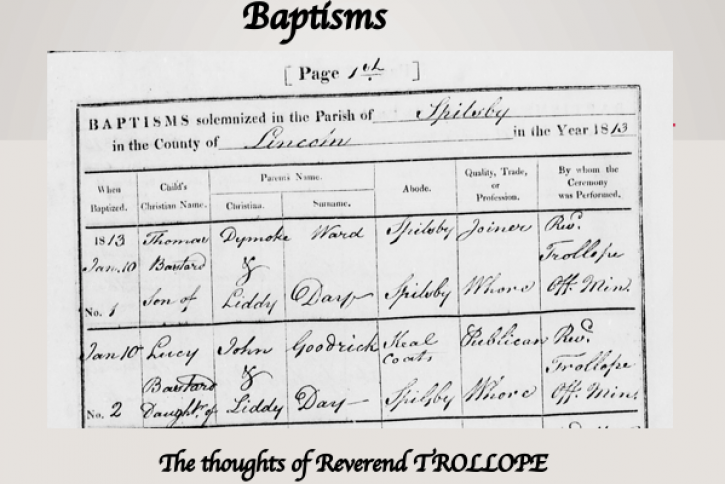 Baptisms
[ Page 1st ]
BAPTISMS solemnized in the Parish of Spilsby
in the County of Lincoln in the Year 1813
When Baptized. Child's Christian Name. Parents Name. Christian. Surname. Abode. Quality, Trade, or Profession. By whom the Ceremony was Performed.
1813 Thomas Dymoke Ward Spilsby Joiner Revd.
Jan. 10 Bastard & Trollope
No. 1 Son of Liddy Day Spilsby Whore Off. Min.
Jan 10 Lucy John Goodrick Keal Coats Publican Revd.
Bastard & Trollope
No. 2 Daughtr. of Liddy Day Spilsby Whore Off. Min.
The thoughts of Reverend TROLLOPE